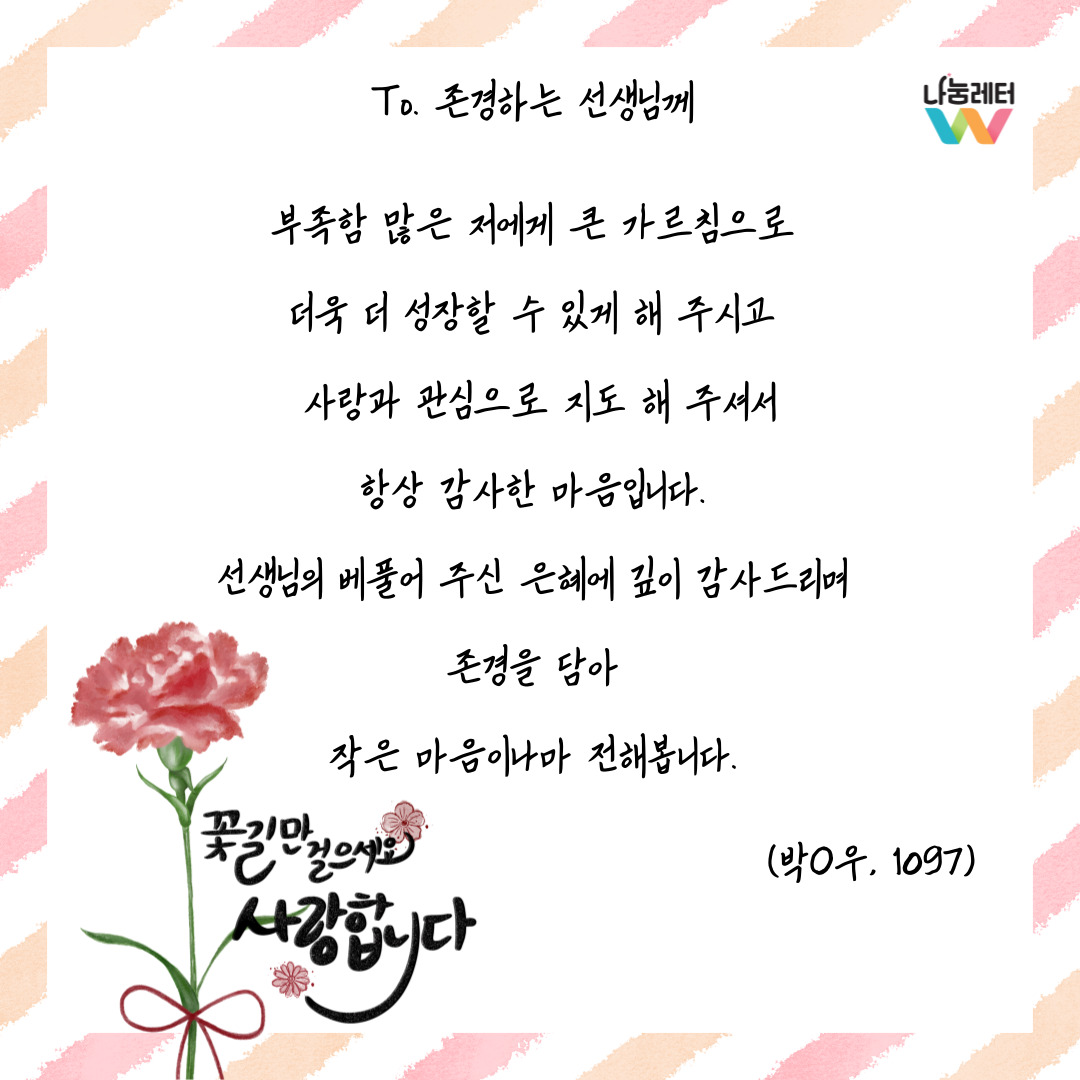 To. 존경하는 선생님께
나눔레터
W
부족함 많은 저에게 큰 가르침으로
더욱 더 성장할 수 있게 해 주시고
사랑과 관심으로 지도 해 주셔서
항상 감사한 마음입니다.
선생님의 베풀어 주신 은혜에 깊이 감사드리며
존경을 담아
작은 마음이나마 전해봅니다.
꽃길만
걸으세요
사랑합니다
(박O우, 1097)